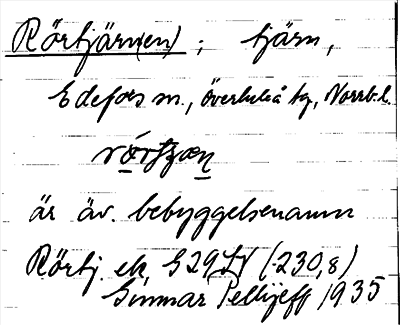 Rörtjärn(en); tjärn,
Edefors sn., Överluleå tg, Norrb. l.
är äv. bebyggelsenamn
Rörtj. ek, G29 (-230,8)
Gunnar Pellijeff 1935